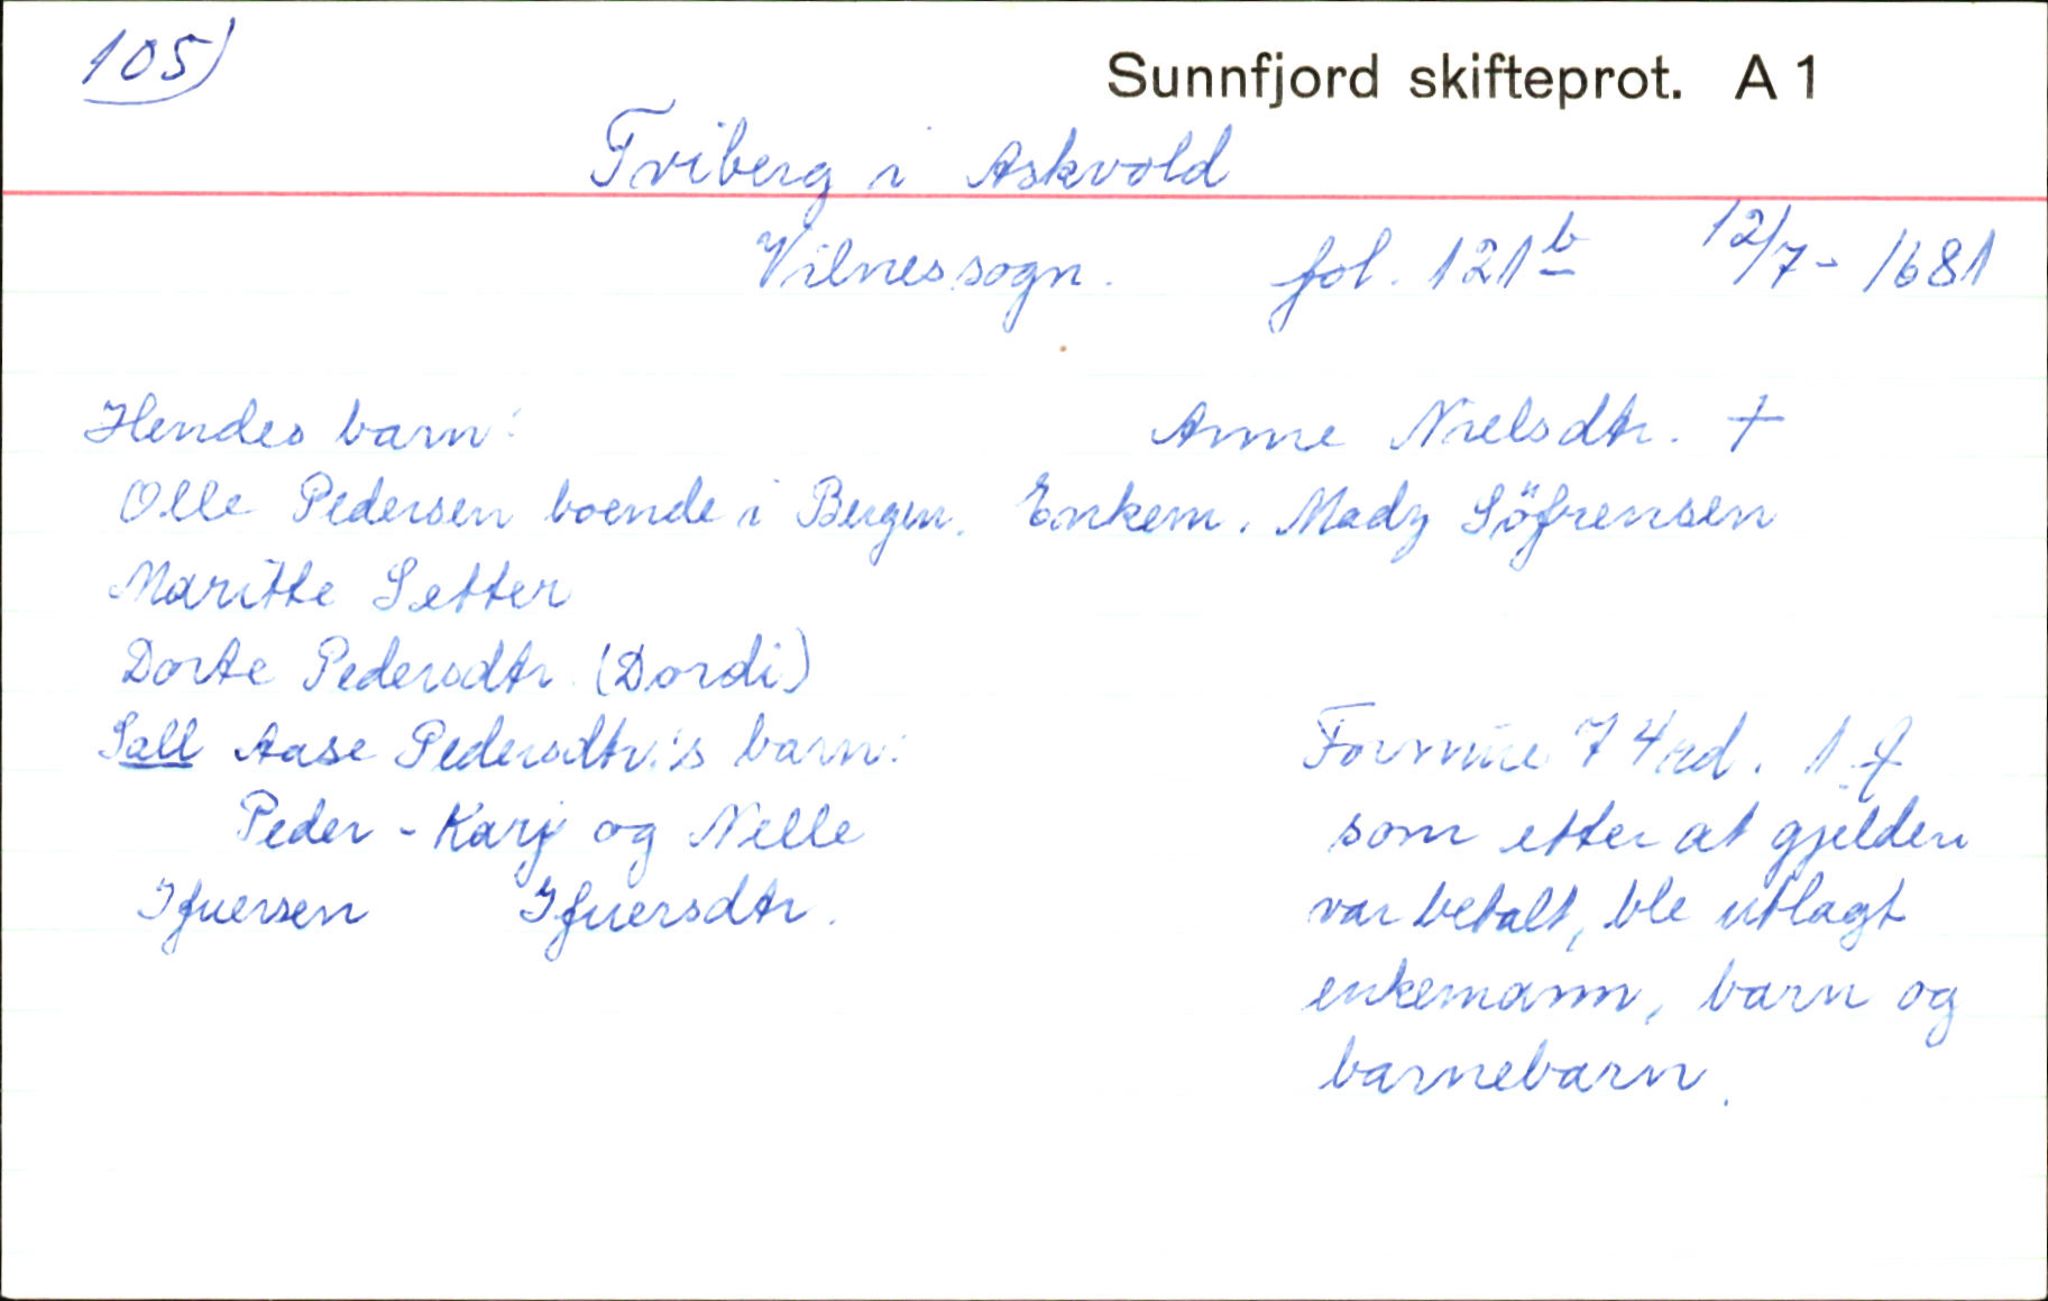 105)
Sunnfjord skifteprot. A 1
Friberg i Askvold
Vilnes sogn. fol. 121 b 12/7- 1681
Hendes barn:
Anne Nielsdtr. †
Olle Pedersen boende i Bergen.
Enkem. Madz Söfrensen
Maritte Setter
Dorte Pedersdtr (Dordi)
Sall Aase Pedersdtr.'s barn:
Peder - Karj og Nelle
Ifuersen Ifuersdtr.
Formue 74 rd. 1
som etter at gjelden
var betalt, ble utlagt
enkemann, barn og
barnebarn.